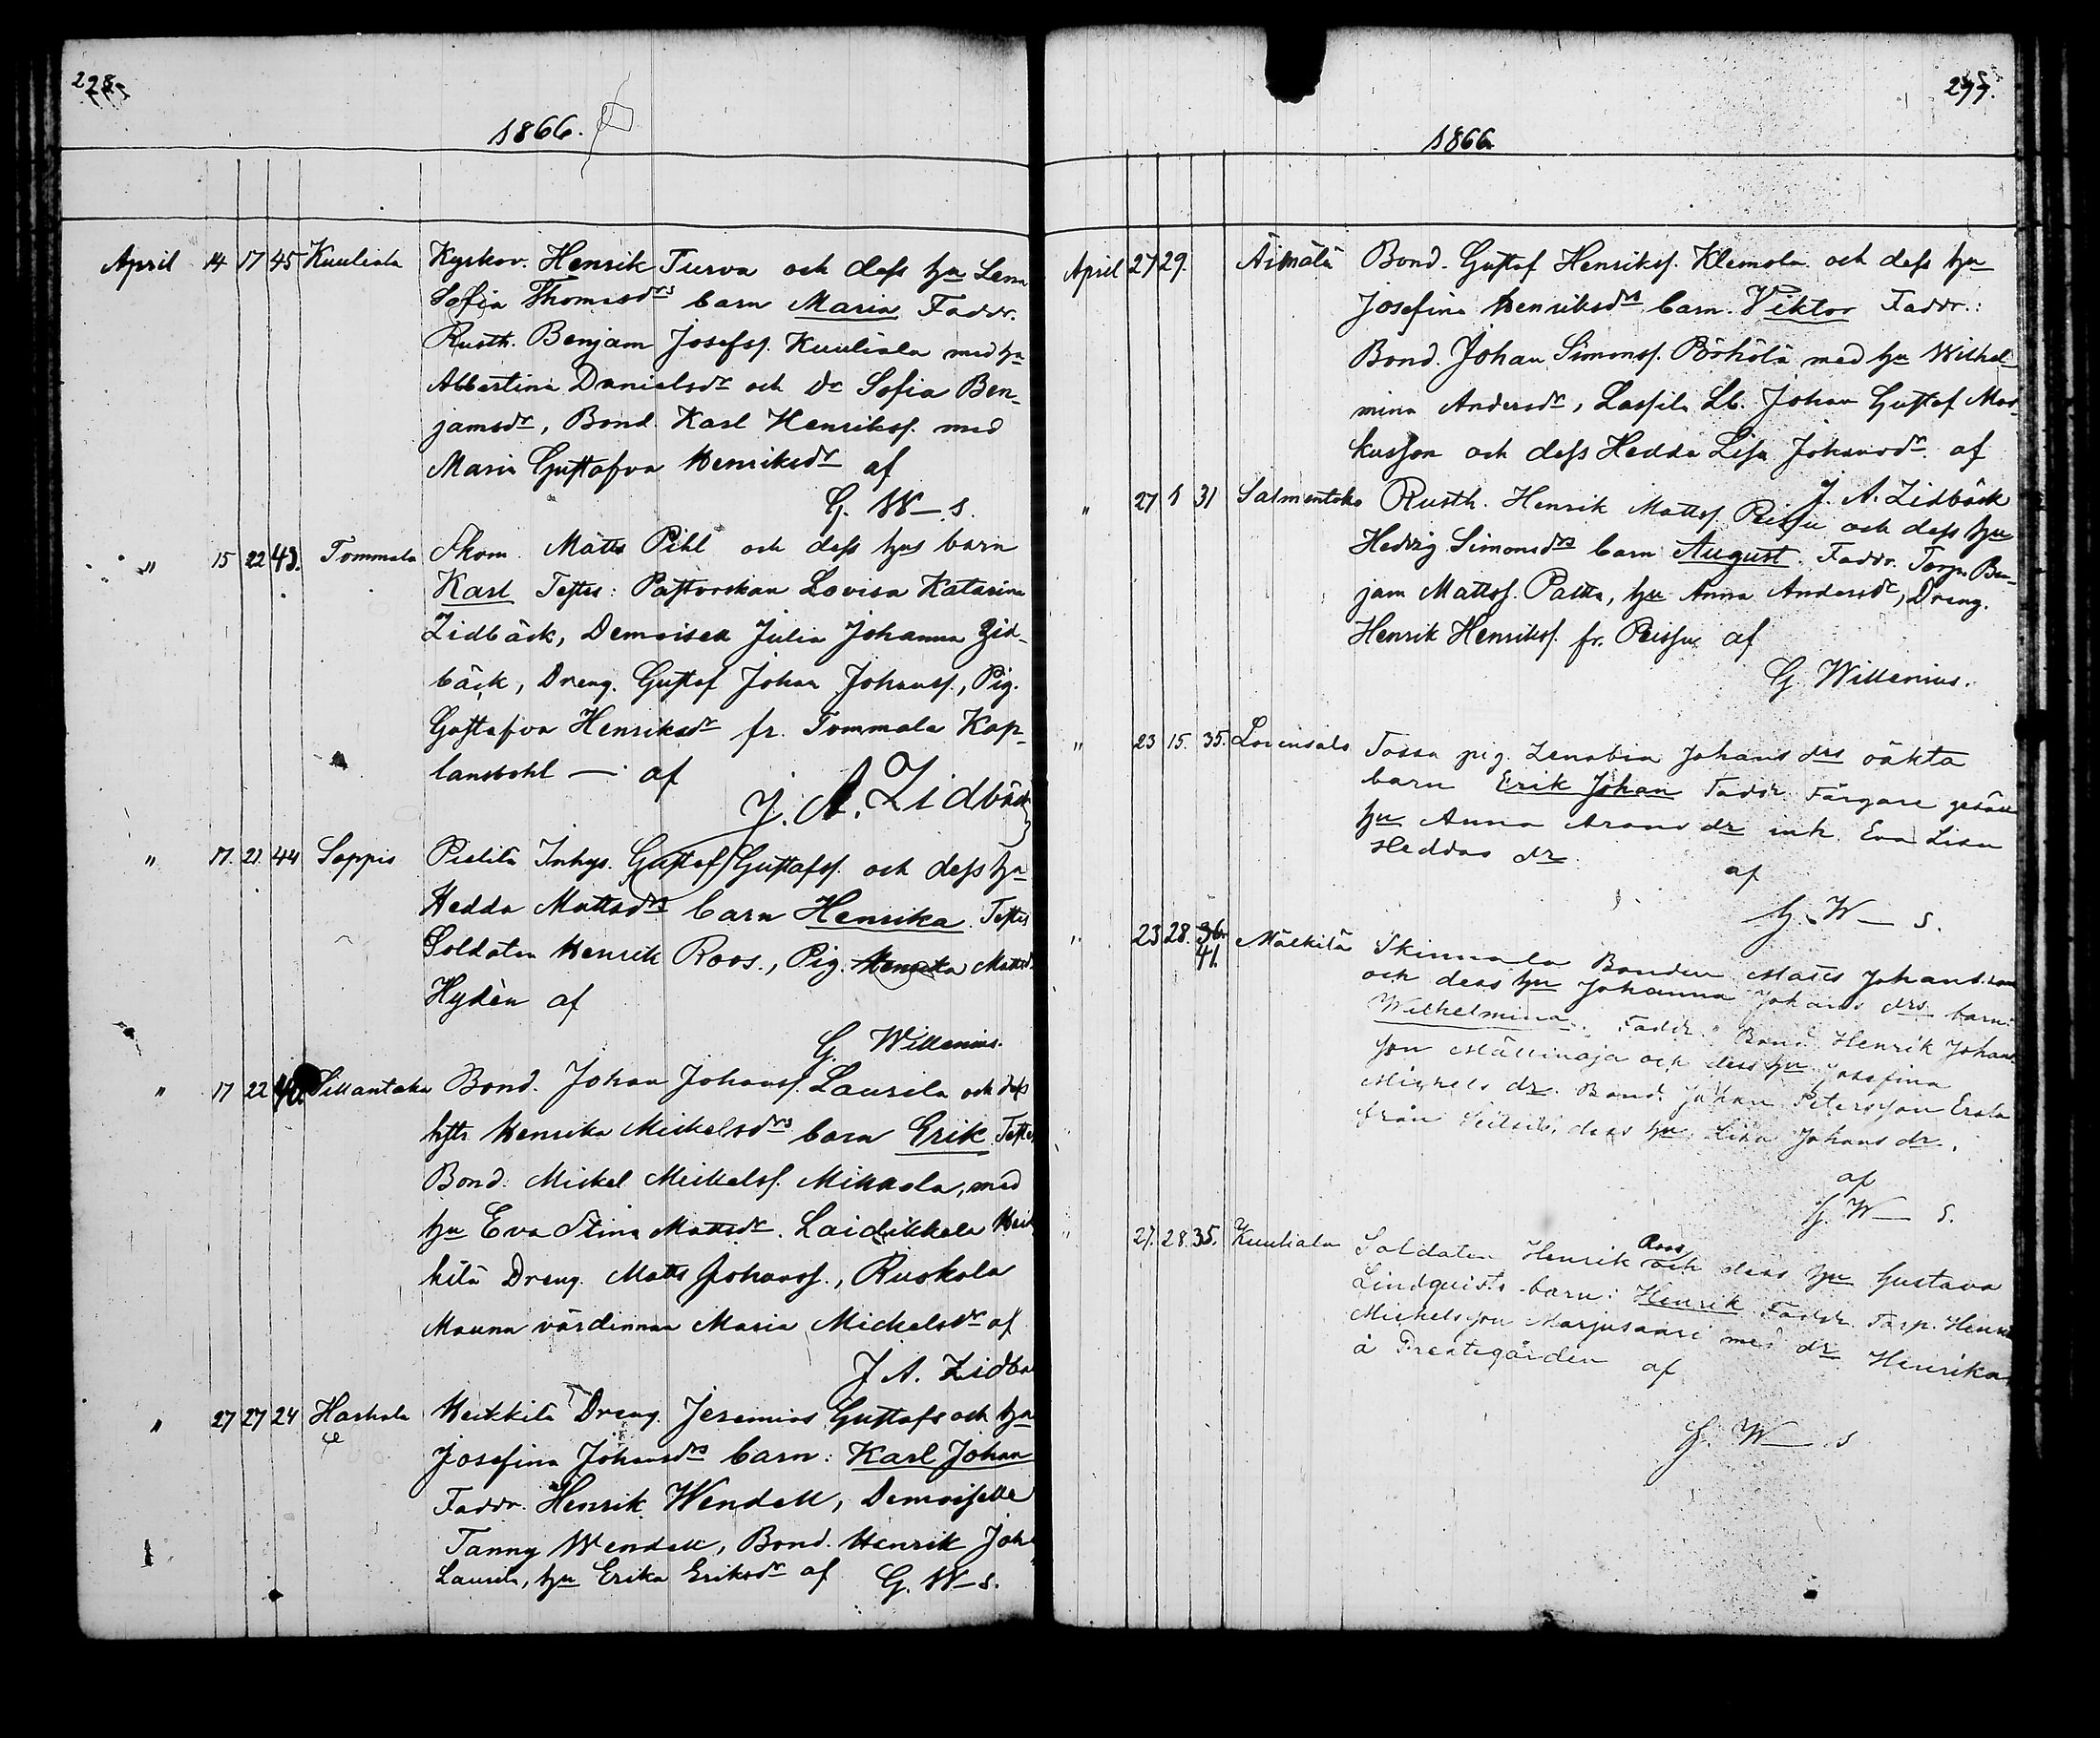 228.
1866.
April 14 17 45 Kuuliala Kyrkov. Henrik Turva och dess hu Lena
Sofia Thomasdrs barn Maria Faddr.
Rusth. Benjam Josefss. Kuuliala med hu
Albertina Danielsdr och dr Sofia Ben-
jamsdr, Bond Karl Henrikss. med
Maria Gustafva Henriksdr af
G. W—s.
" 15 22 43. Tommala Skom. Matts Pihl och dess hus barn
Karl Testes: Pastorskan Lovisa Katarina
Lidbäck, Demoisell Julia Johanna Lid-
bäck, Dreng. Gustaf Johan Johanss., Pig.
Gustafva Henriksdr fr. Tommala Kap-
lansbohl — af
J. A. Lidbäck
" 17. 21. 44 Seppis Pielitä Inhys. Gustaf Gustafss. och dess hu
Hedda Mattsdrs barn Henrika. Testes
Soldaten Henrik Roos., Pig. Henrika Mattsd.
Hydèn af
G. Willenius.
" 17 22 40. Sillantaka Bond. Johan Johanss. Laurila och dess
hustr. Henrika Mickelsdrs barn Erik Testes
Bond. Mickel Mickelss. Mikkola, med
hu Eva Stina Mattsdr. Laidikkala Heik
kilä Dreng. Matts Johanss., Ruokola
Mauna värdinnan Maria Mickelsdr af
J A. Lidbä
" 27 27 24 Harhala Heikkilä Dreng. Jeremias Gustafs och hu
Josefina Johansdrs barn: Karl Johan
Faddr. Henrik Wendell, Demoiselle
Fanny Wendell, Bond. Henrik Joh
Laurila, hu Erika Eriksdr af G. W—s.
277.
1866.
April 27 29. Äimälä Bond. Gustaf Henrikss. Klemola och dess hu
Josefina Henriksdrs barn. Viktor Faddr.:
Bond. Johan Simonss. Pörhölä med hu Wilhel-
mina Andersdr, Lassila Lb. Johan Gustaf Mar-
kusson och dess Hedda Lisa Johansdr. af
J. A. Lidbäck
" 27 1 31 Salmentaka Rusth. Henrik Mattss. Peissu och dess hu
Hedvig Simonsdrs barn August. Faddr. Torp. Ben-
jam Mattss. Paltta, hu Anna Andersdr, Dreng.
Henrik Henrikss. fr. Peissu af
G. Willenius.
" 23 15. 35. Lovensalo Tossa pig. Zenobia Johans drs oäkta
barn Erik Johan Faddr. Färgare gesäll
hu Anna Arons dr inh. Eva Lisa
Heddas dr.
af
G. W— s.
" 23 28. 36. 41. Mälkilä Skinnala Bonden Matts Johansson
och dess hu Johanna Johans drs barn:
Wilhelmina. Faddr. Bond Henrik Johans
son Mällinoja och dess hu Josefina
Mickels dr. Bond. Johan Petersson Erola
från dess hu Lisa Johans dr.
af
G. W— s.
" 27. 28. 35. Kuuliala Soldaten Henrik Roos och dess hu Gustava
Lindquists barn: Henrik Faddr. Torp. Henrik
Michelsson Marjusaari med dr Henrika
å Prestegården af
G. W— s